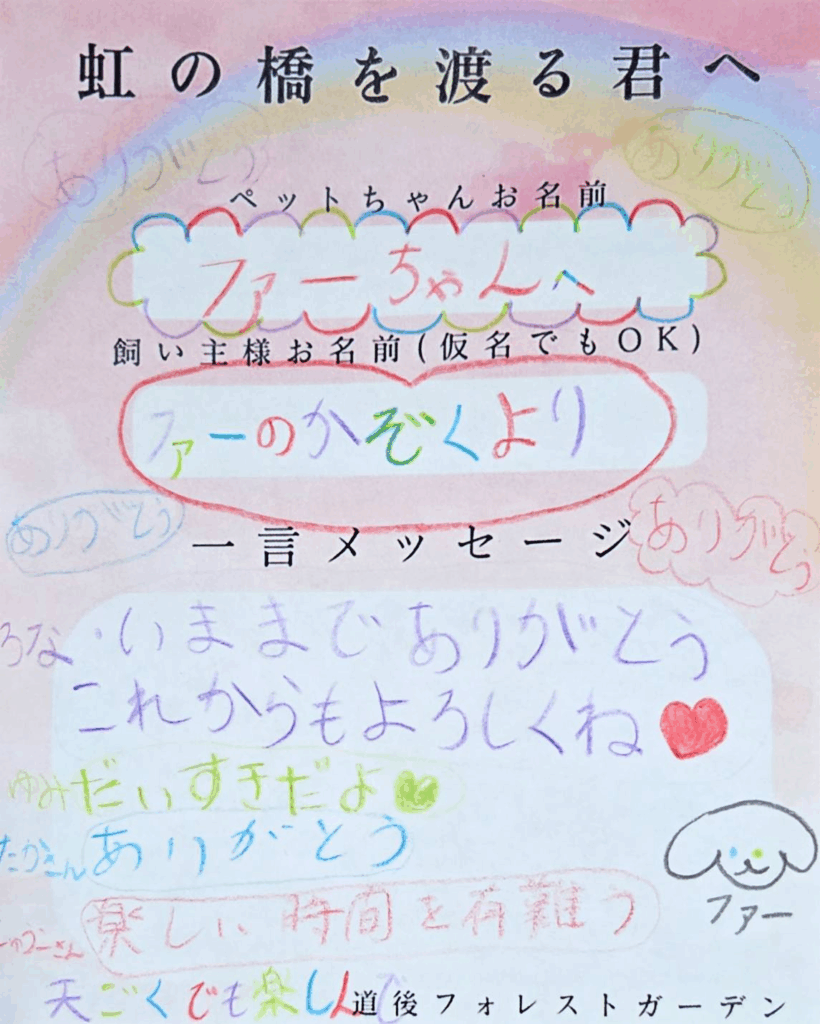 虹の橋を渡る君へ
ありがとう
ありがとう
ペットちゃんお名前
ファーちゃんへ
飼い主様お名前(仮名でもOK)
ファーのかぞくより
ありがとう
一言メッセージ
ありがとう
ろな・いままでありがとう
これからもよろしくね
ゆみ だいすきだよ
たかさん ありがとう
楽しい時間を有難う
ファー
天ごくでも楽しんで
道後フォレストガーデン